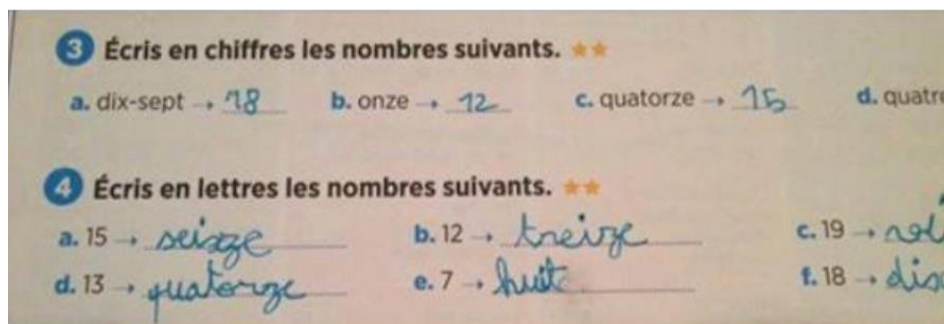 3 Écris en chiffres les nombres suivants.
a. dix-sept → 18 b. onze → 12 c. quatorze → 15 d.
4 Écris en lettres les nombres suivants.
a. 15 → seizge b. 12 → treize c. 19 →
d. 13 → quatorze e. 7 → huit f. 18 →